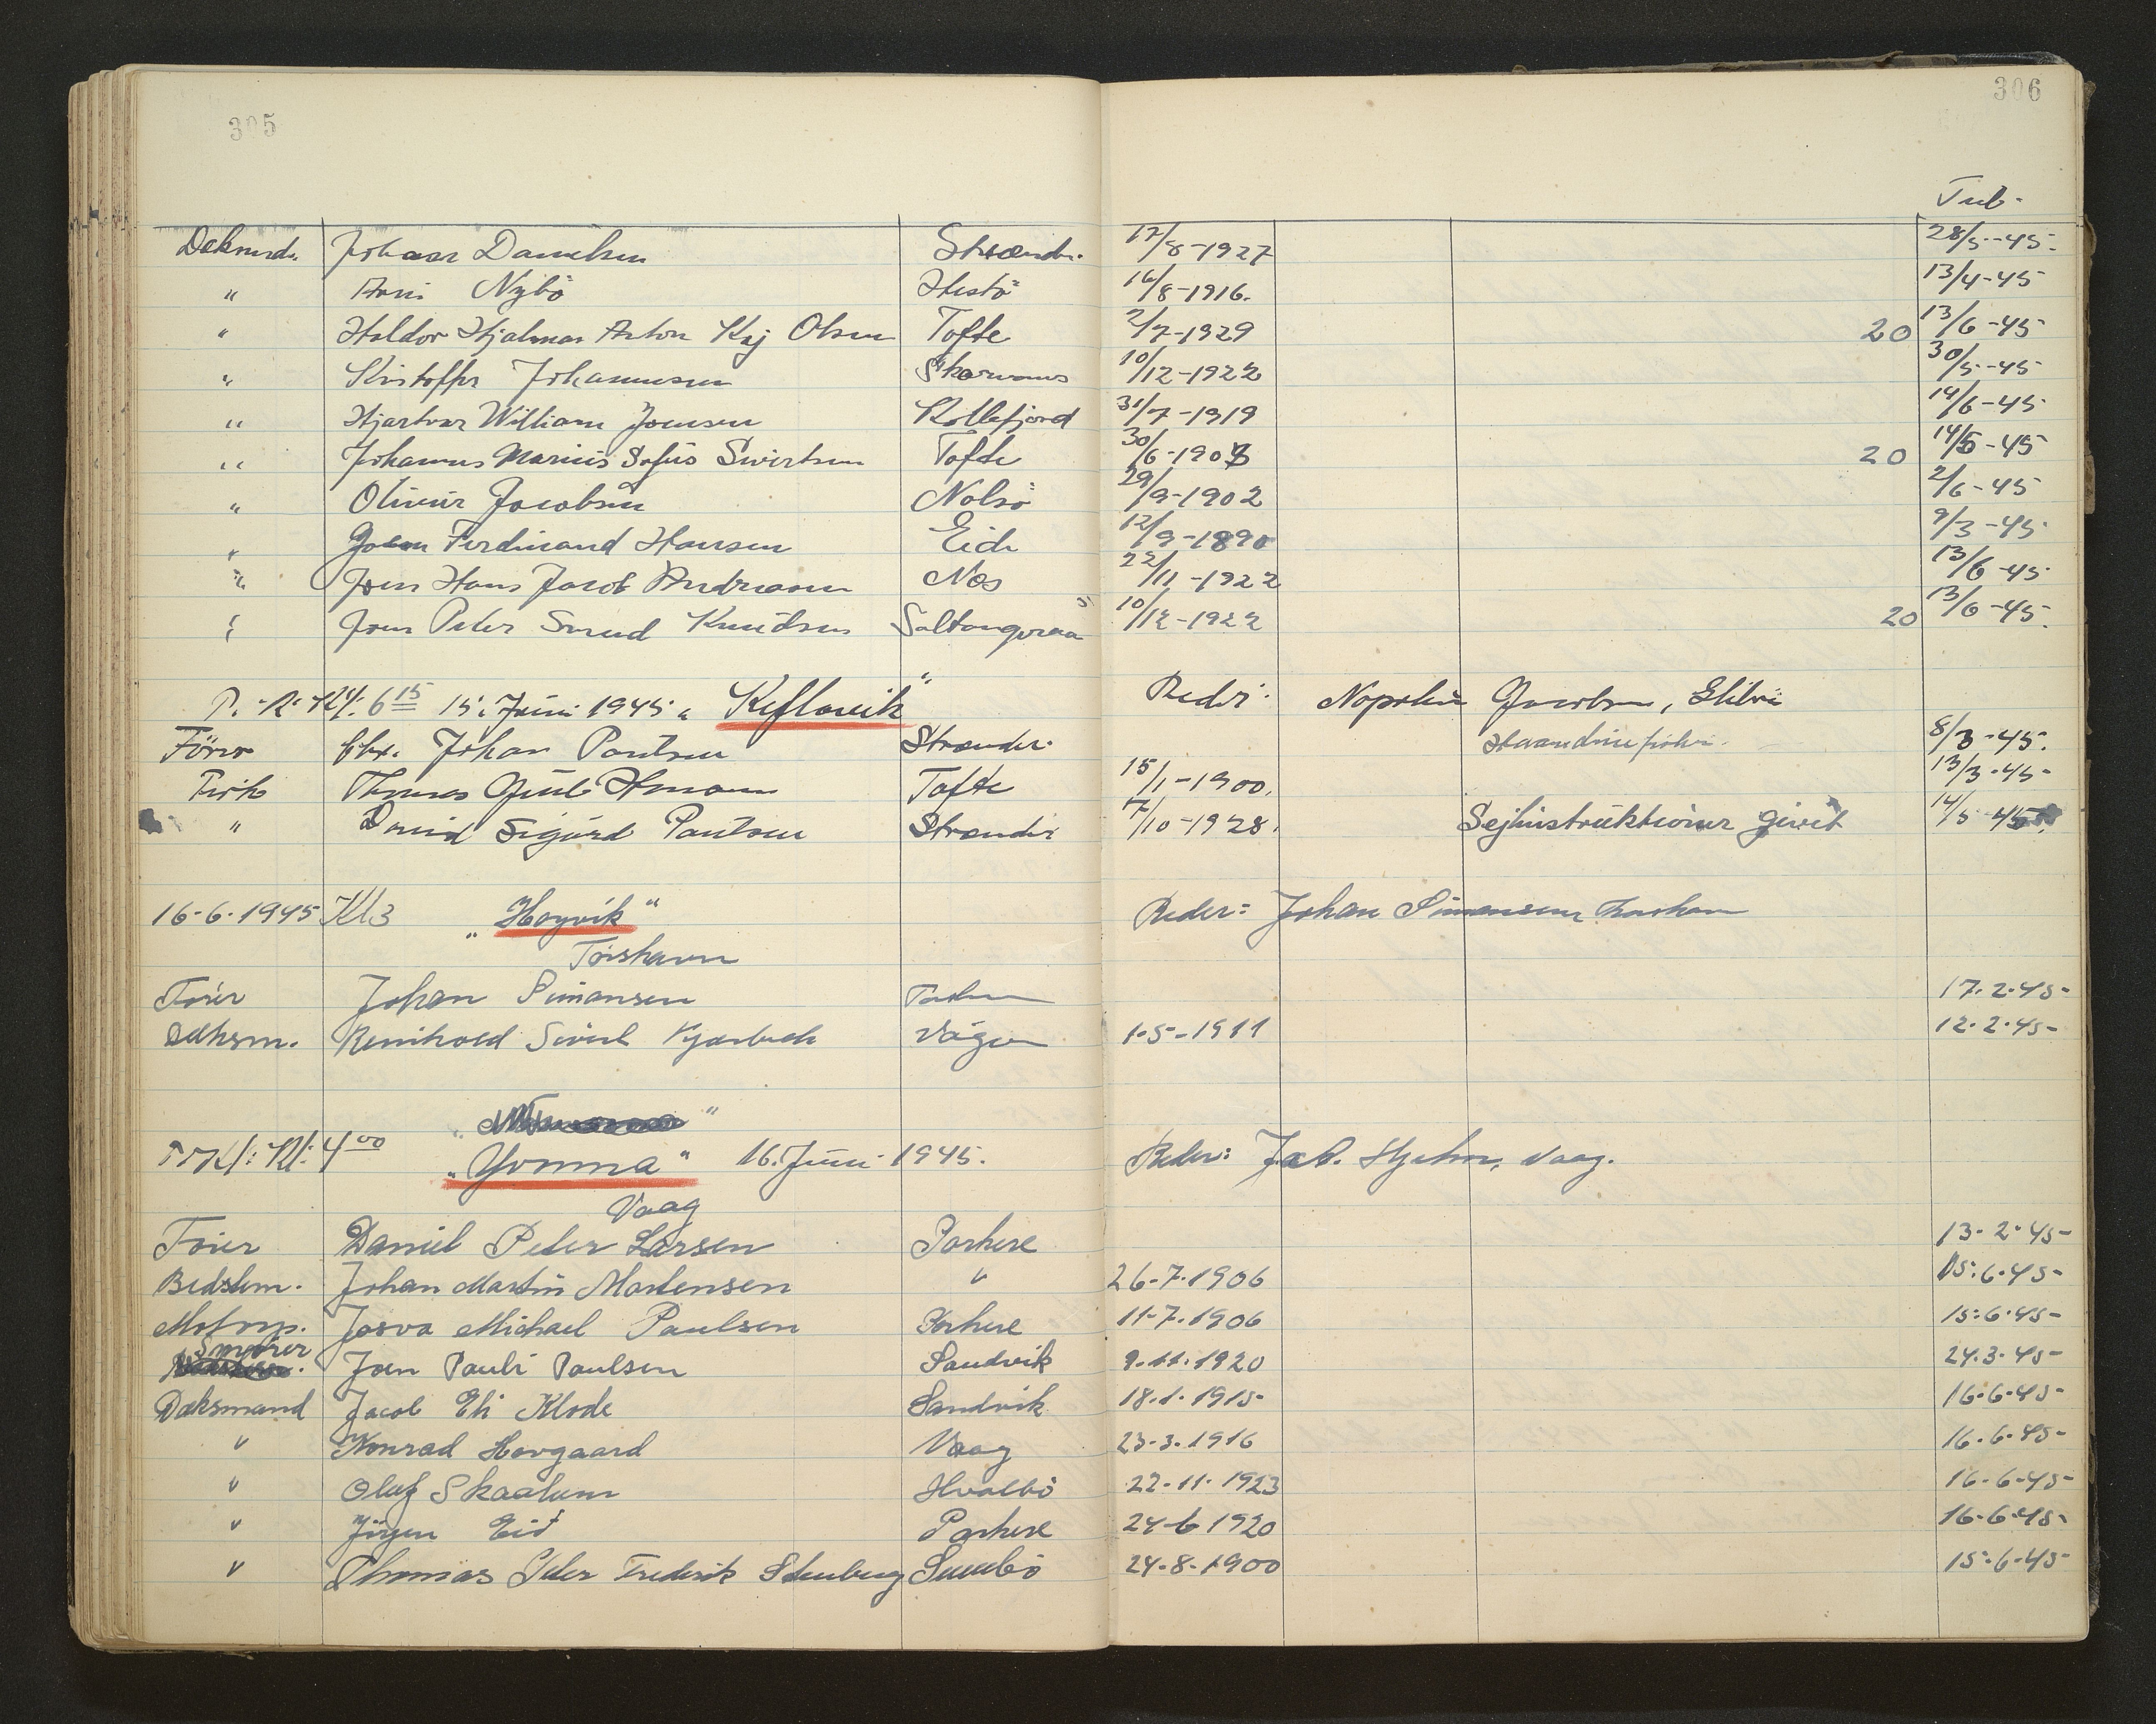 305
306
Tub.
Johan Danielsen Strænder 17/8-1927 28/5-45.
" Arni Nybö Hestö 16/8-1916. 13/4-45
" Haldor Hjalmar Anton Kaj Olsen Tofte 2/7-1929 20 13/6-45
" Kristoffer Johannesen 10/12-1922 30/5-45
" William Joensen Kollefjord 31/7-1919 14/6-45
" Johannes Marius Sofus Sivertsen Tofte 30/6-1903 20 14/5-45
" Olivur Jacobsen Nolsö 29/9-1902 2/6-45
" Joen Ferdinand Hansen Eide 12/9-1890 9/3-45
" Joen Hans Jacob Andreasen Nes 22/11-1922 13/6-45
" Joen Peter Knudsen Saltangeraa 10/12-1922 20 13/6-45.
Kl. 6 15 15. Juni 1945 „Keflavik" Reder: Napoleon Jacobsen, Glibre
Förer Johan Poulsen Strænder 8/3-45.
Fisk Thomas Tofte 15/1-1900. 13/3-45
" David Sigurd Poulsen Strænder 7/10-1928. Sejlinstruktioner givet 14/5 45
16-6-1945 Kl 3 „Hoyvik" Reder: Johan Simonsen Torshavn
Torshavn
Förer Johan Simonsen Torshavn 17-2-45-
Dæksm. Reinhold Sivert Kjærbech Vágur 1-5-1911 12-2-45-
Kl: 4 00 „Yvonna" 16. Juni 1945. Reder: Jac. Vaag.
Vaag
Förer Daniel Peter Larsen Porkere 13-2-45-
Bedstem. Johan Martin Mortensen " 26-7-1906 15-6-45-
Motorp. Josva Michael Paulsen Porkere 11-7-1906 15-6-45-
Smörer Joen Pauli Paulsen Sandvik 9-11-1920 24-3-45-
Daksmand Jacob Eli Klode Sandvik 18-1-1915 16-6-45-
" Konrad Hovgaard Vaag 23-3-1916 16-6-45-
" Oluf Skaalum Hvalbö 22-11-1923 16-6-45-
" Jörgen Eid Porkere 24-6 1920 16-6-45-
" Thomas Peter Frederik Stenberg Sumbö 24-8-1900 15-6-45-